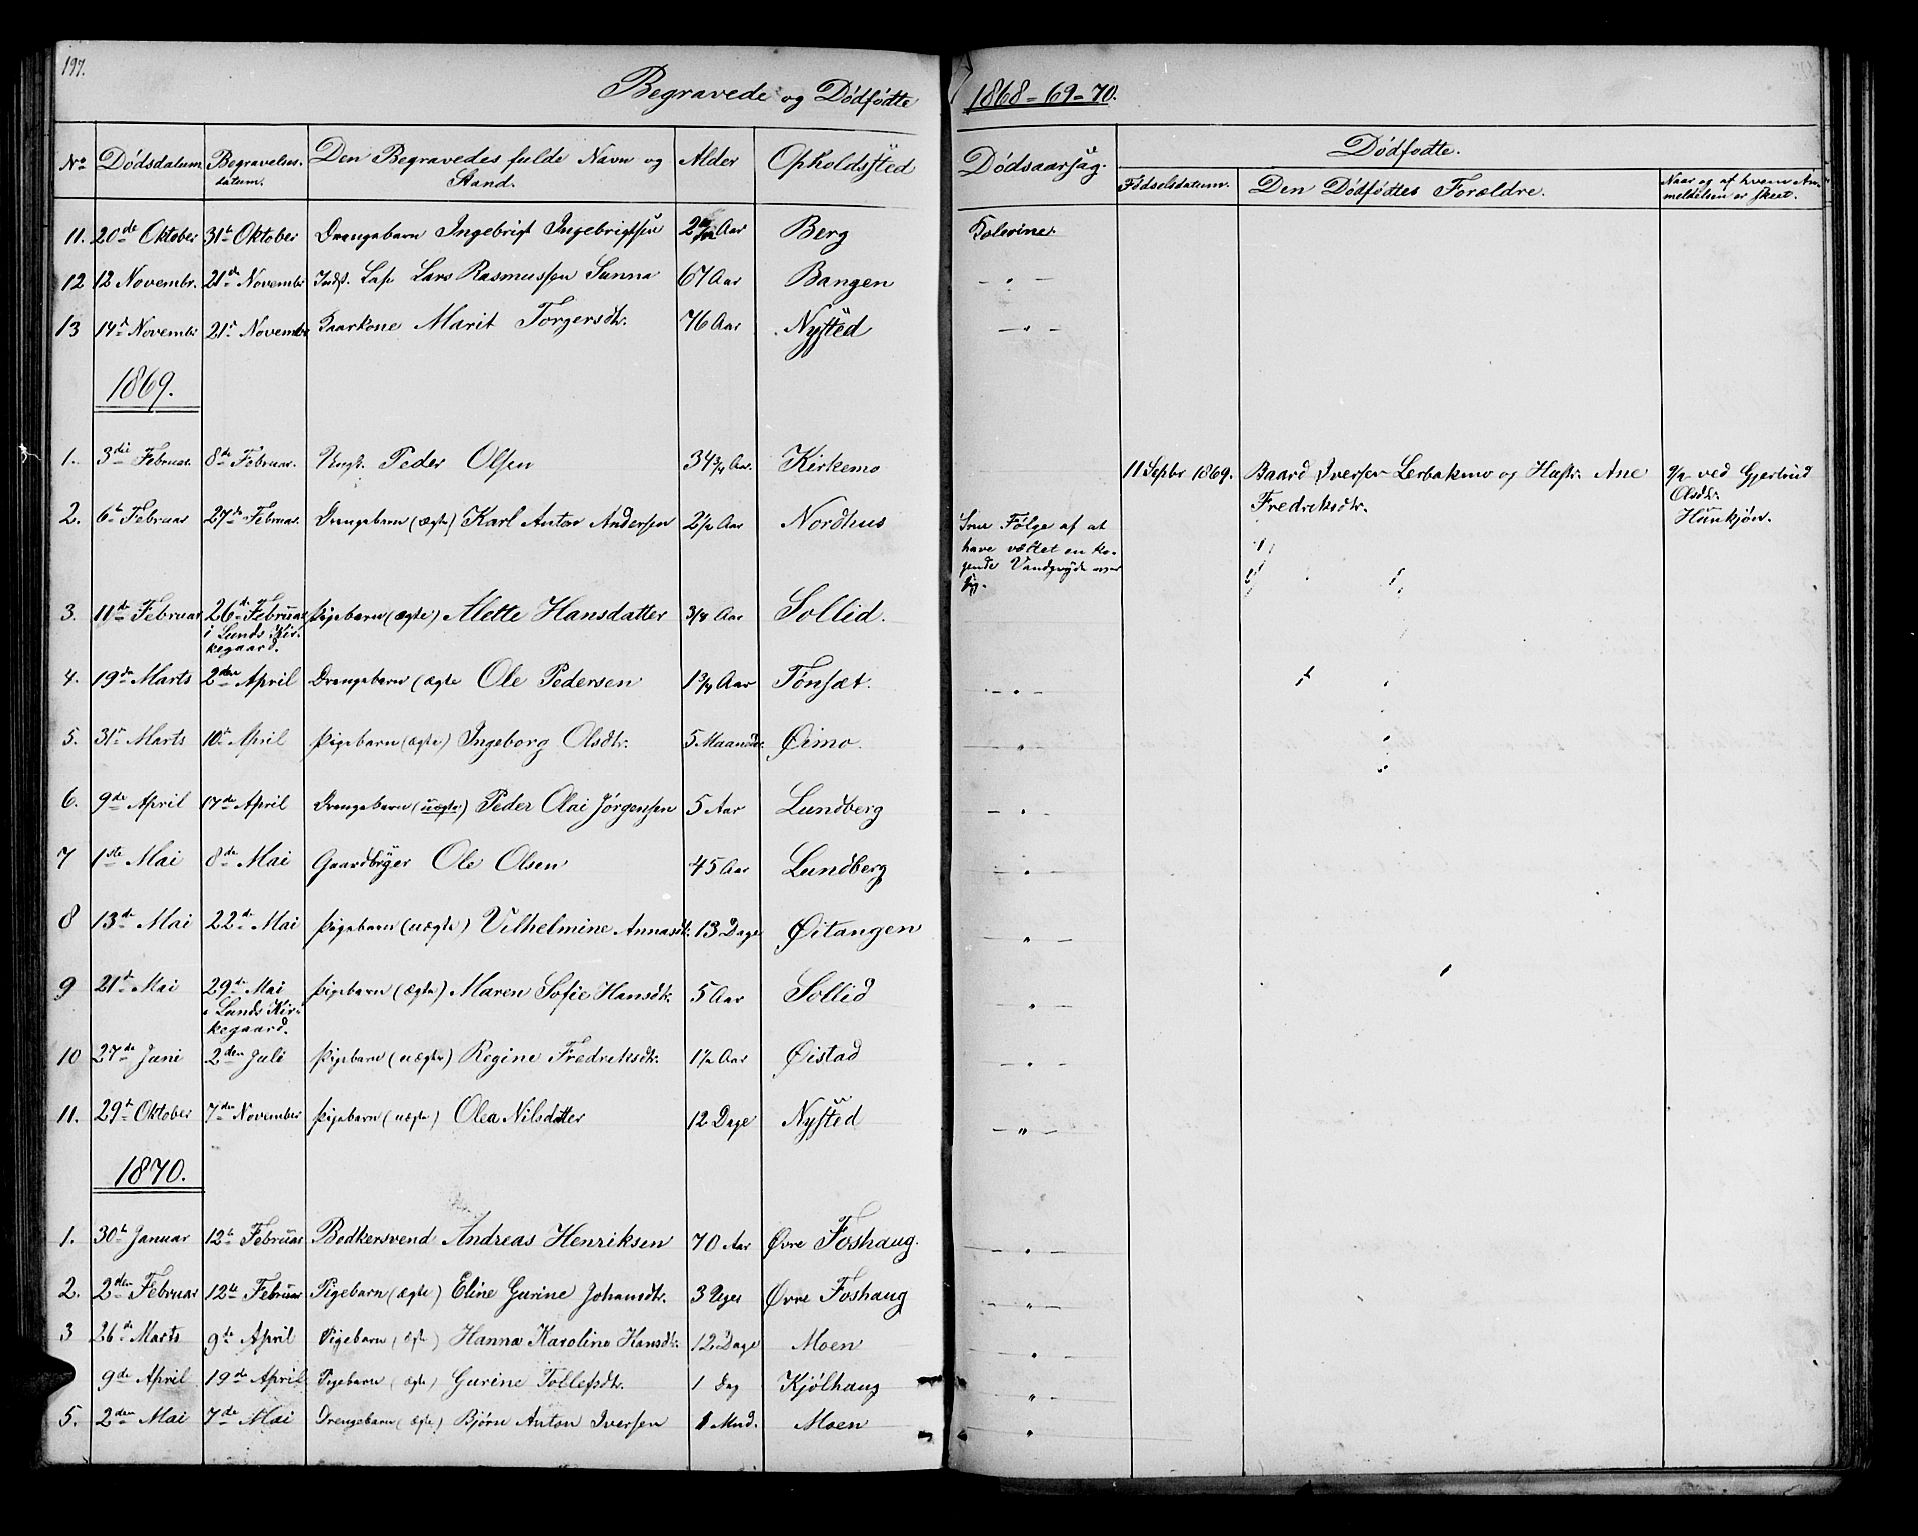 197.
Begravede og Dödfödte 1868-69-70.
No Dödsdatum Begravelsesdatum. Den Begravedes fulde Navn og Stand. Alder Opholdssted Dödsaarsag. Dödfodte.
Födselsdatum. Den Dödfödtes Forældre. Naar og af hvem Anmeldelsen er skeet.
11. 20de Oktober 31te Oktober Drengebarn Ingebrigt Ingebrigtsen Aar Berg Kolerine.
12 12 Novembr. 21de November Inds. Lap Lars Rasmussen Sunna 67 Aar Bangen - " -
13 14de Novembr 21de November Kaarkone Marit Torgersdtr. 76 Aar Nysted - " -
1869.
1. 3die Februar. 8de Februar. Ungk. Peder Olsen 34 3/4 Aar. Kirkemo
11 Septbr 1869. Baard Iversen Lerbakmo og Hustr. Ane Fredriksdtr. ved Gjertrud Olsdtr. Hunkjön.
2. 6te Februar 27de Februar. Drengebarn (ægte) Karl Anton Andersen 2 1/2 Aar Nordhus Som Følge af at
have væltet en ko-
gende Vandgryde over
sig.
3. 11te Februar 26de Februar Pigebarn (ægte) Alette Hansdatter 3/4 Aar Sollid.
i Lunds Kir-
kegaard.
4. 19de Marts 2den April Drengebarn (ægte Ole Pedersen 1 3/4 Aar Tönsæt. - " -
5. 31te Marts 10de April Pigebarn (ægte) Ingeborg Olsdtr. 5 Maaneder. Øimo. - " -
6. 9de April 17de April Drengebarn (uægte) Peder Olai Jörgensen 5 Aar Lundberg - " -
7 1ste Mai 8de Mai Gaardbryger Ole Olsen 45 Aar Lundberg - " -
8 13de Mai 22de Mai Pigebarn (uægte) Vilhelmine Annasdtr. 13 Dage Øitangen - " -
9 21de Mai 29de Mai Pigebarn (ægte) Maren Sofie Hansdtr. 5 Aar Sollid - " -
i Lunds Kir-
kegaard.
10 27de Juni 2den Juli Pigebarn (uægte) Regine Fredriksdtr. 1 1/2 Aar Øistad - " -
11. 29de Oktober 7de November Pigebarn (uægte) Olea Nilsdatter 12 Dage Nysted - " -
1870.
1. 30te Januar 12te Februar Bödkersvend Andreas Henriksen 70 Aar Øvre Foshaug. - " -
2. 2den Februar 12te Februar Pigebarn (ægte) Eline Gurine Johansdtr. 3 Uger Øvre Foshaug - " -
3 26de Marts 9de April Pigebarn (ægte) Hanna Karoline Hansdtr. 12 Dage Moen "
9de April 19de April Pigebarn (ægte) Gurine Tollefsdtr. 1 Dag Kjölhaug - " -
5. 2den Mai 7de Mai Drengebarn (ægte) Björn Anton Iversen 1 Mnd. Moen "